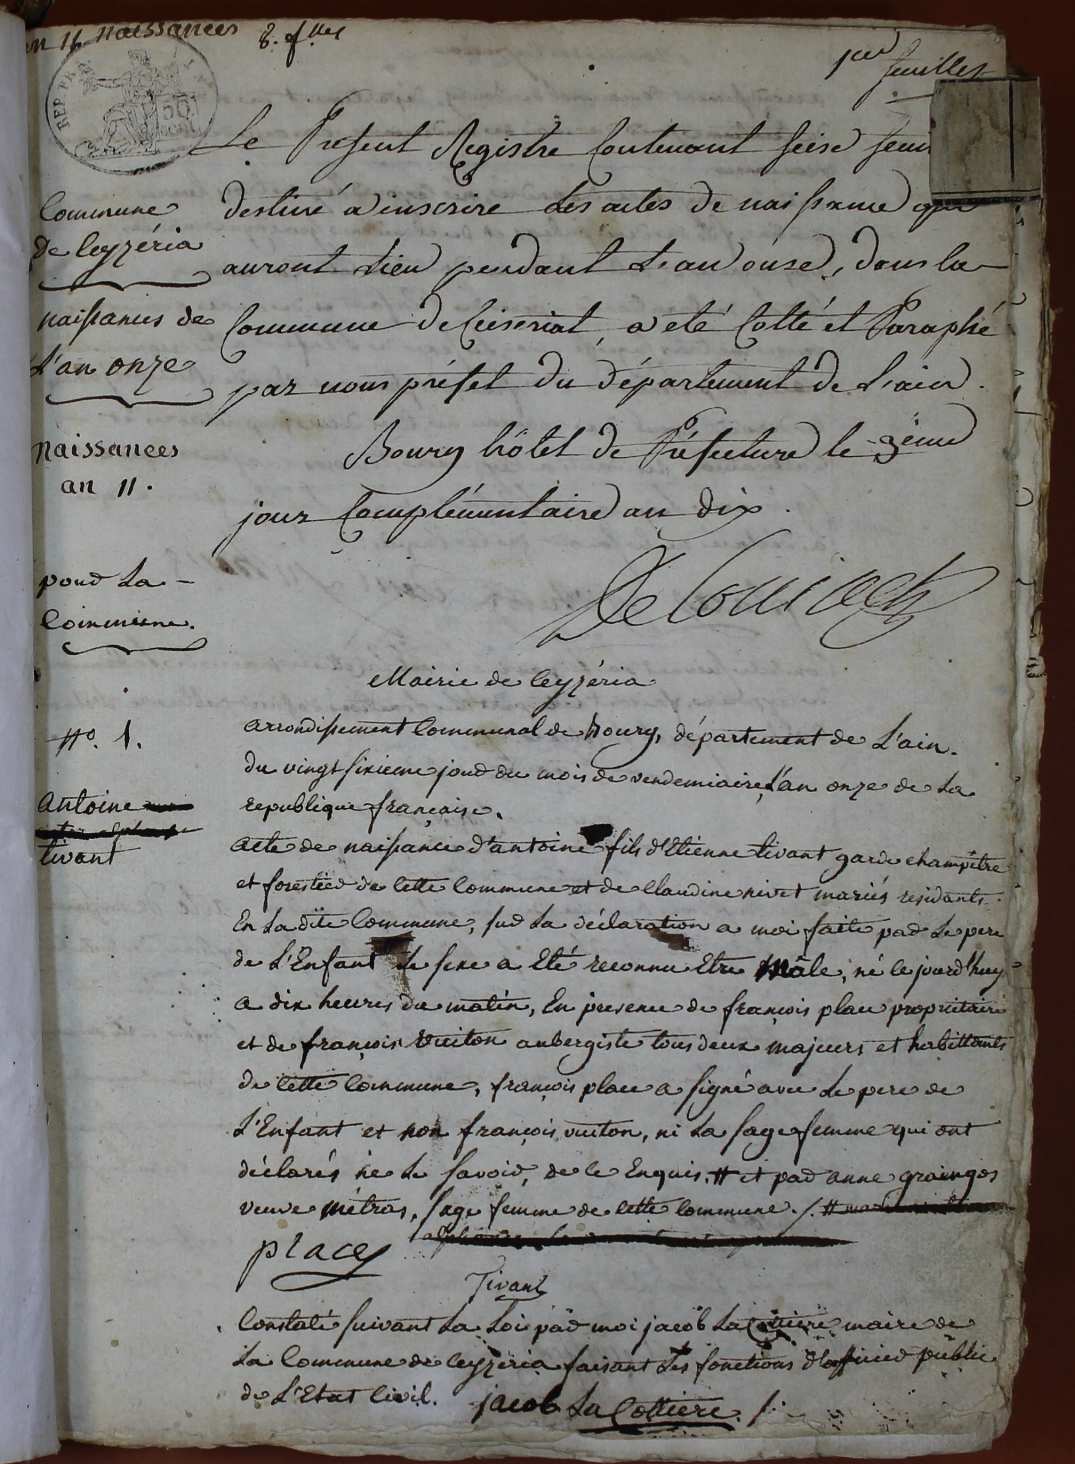 an 11 naissances
1er feuillet
REP. FRA.
Le Présent Registre Contenant seize feui
destiné a inscrire Les actes de naissance qui
auront Lieu pendant L'an onze, dans la
Commune de Ceiseriat, a eté Cotté et Paraphé
par nous préfet du département de L'ain.
Bourg hôtel de Préfecture le 3eme
jour Complémentaire an dix.
Commune
de Ceyzéria
naissances de
L'an onze
Naissances
an 11.
pour La
Commune.
Mairie de Ceyzéria
No. 1.
Antoine
tivant
arrondissement Communal de Bourg, département de L'ain.
du vingt sixieme jour du mois de vendemiaire, L'an onze de La
republique française.
acte de naissance d'antoine fils d'Etienne tivant garde champêtre
et forestier de Cette Commune et de Claudine nivet mariés residants
En La dite Commune, sur La déclaration a moi faite par Le pere
de L'Enfant Le sexe a Eté reconnu Etre Mâle, né ce jourd'huy
a dix heures du matin, En presence de françois place propriétaire
et de françois vuiton aubergiste tous deux majeurs et habittants
de Cette Commune, françois place a signé avec Le pere de
L'Enfant et non françois vuiton, ni La sage femme qui ont
déclarés ne Le savoir, de ce Enquis. # et par anne
veuve métras, sage femme de Cette Commune ./. #
place
Tivant
Constaté suivant La Loi par moi jacob La Cottiere maire de
La Commune de Ceyzéria faisant Les fonctions d'officier public
de L'Etat Civil. jacob La Cottiere ./.